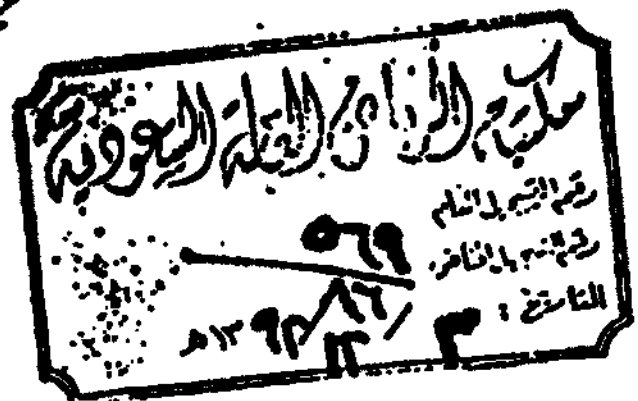 مكتبة الرياض العامة السعودية
رقم التسجيل العام
٥٦٩
رقم التسجيل الخاص
٨٦
التاريخ : ٣ / ١٢ / ١٣٩٢هـ